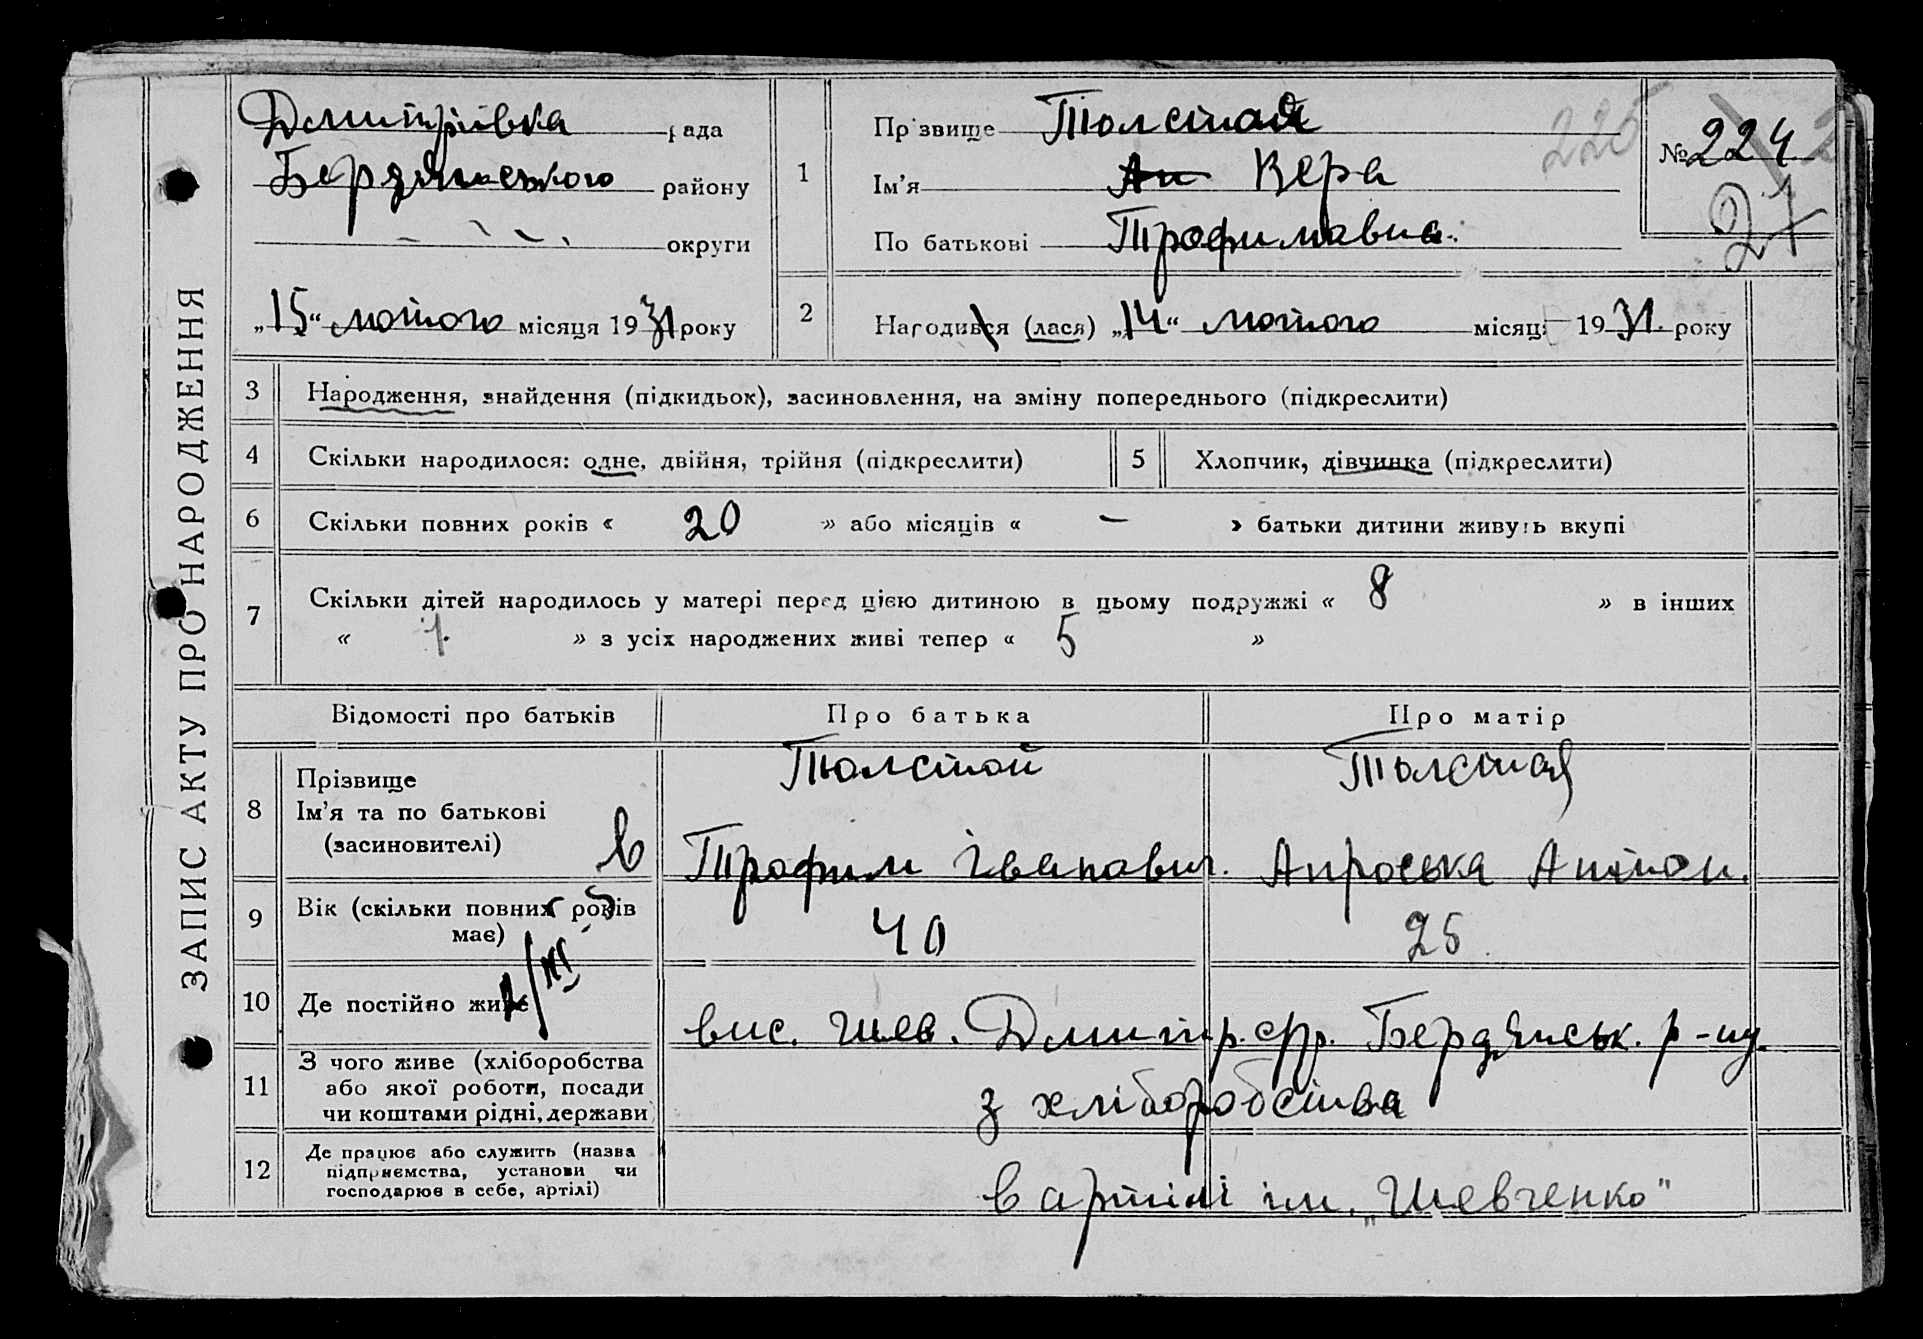 ЗАПИС АКТУ ПРО НАРОДЖЕННЯ
Дмитрівка рада
Бердянського району
округи
„15“ лютого місяця 1931 року
1
Прізвище Толстая
Ім’я Вера
По батькові Трофимавна
225
№ 224
27
2
Народився (лася) „14“ лютого місяця 1931 року
3 Народження, знайдення (підкидьок), засиновлення, на зміну попереднього (підкреслити)
4 Скільки народилося: одне, двійня, трійня (підкреслити)
5 Хлопчик, дівчинка (підкреслити)
6 Скільки повних років « 20 » або місяців « – » батьки дитини живуть вкупі
7 Скільки дітей народилось у матері перед цією дитиною в цьому подружжі « 8 » в інших
« » з усіх народжених живі тепер « 5 »
Відомості про батьків Про батька Про матір
8 Прізвище Толстой Толстая
Ім’я та по батькові
(засиновителі) Трофим Іванович. Апроська Антон.
9 Вік (скільки повних років
має) 40 25
10 Де постійно живе вис. Шев. Дмитр. с/р. Бердянськ. р-ну.
11 З чого живе (хліборобства
або якої роботи, посади
чи коштами рідні, держави) з хліборобства
12 Де працює або служить (назва
підприємства, установи чи
господарює в себе, артілі) в артілі ім. „Шевченко"